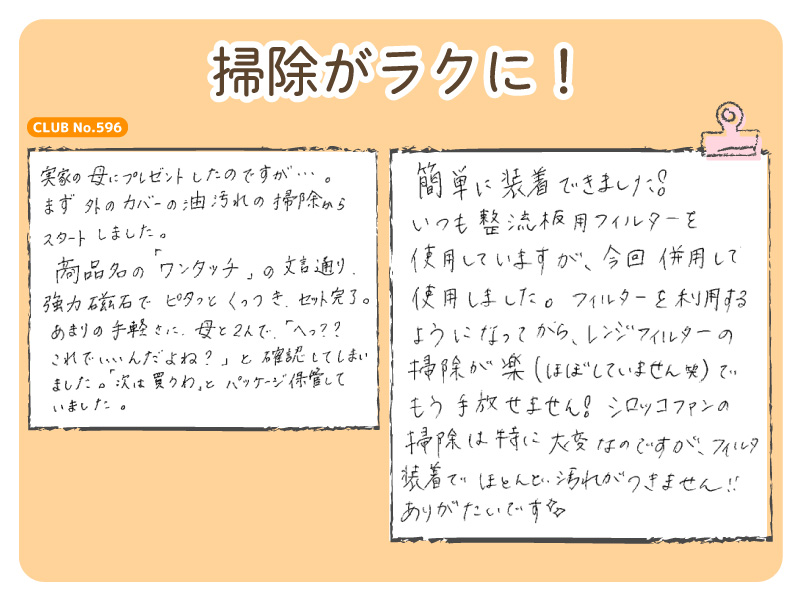 掃除がラクに！
CLUB No.596
実家の母にプレゼントしたのですが…。
まず外のカバーの油汚れの掃除から
スタートしました。
商品名の「ワンタッチ」の文言通り、
強力磁石でピタっとくっつき、セット完了。
あまりの手軽さに、母と2人で、「へっ??
これでいいんだよね？」と確認してしまい
ました。「次は買うわ」とパッケージ保管して
いました。
簡単に装着できました!
いつも整流板用フィルターを
使用していますが、今回併用して
使用しました。フィルターを利用する
ようになってから、レンジフィルターの
掃除が楽(ほぼしていません笑)で
もう手放せません! シロッコファンの
掃除は特に大変なのですが、フィルタ
装着でほとんど汚れがつきません!!
ありがたいです☆